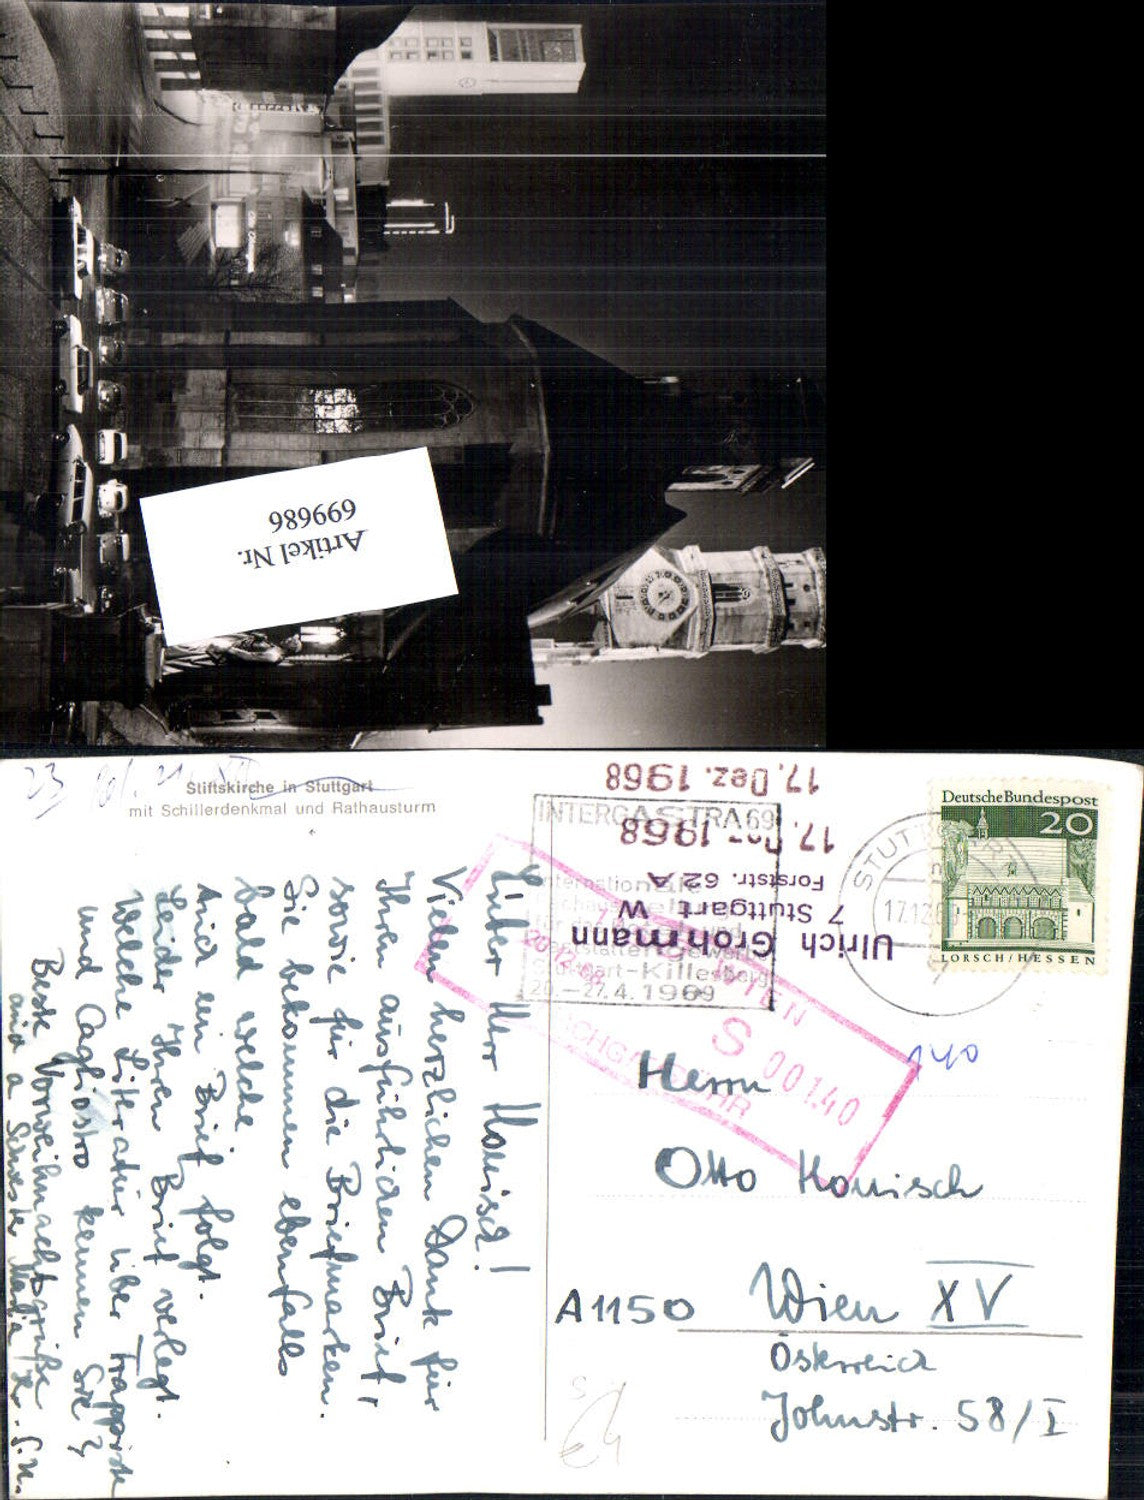 Artikel Nr.
699686
23
Stiftskirche in Stuttgart
mit Schillerdenkmal und Rathausturm
Lieber Herr Honisch!
Vielen herzlichen Dank für
Ihren ausführlichen Brief,
sowie für die Briefmarken.
Sie bekommen ebenfalls
bald welche
And ein Brief folgt.
Leider Ihren Brief verlegt.
Welche Litteratur über Trappisten
und Cagliostro kennen Sie?
Beste Vorweihnachtsgrüße
17. Dez. 1968
17. Dez. 1968
Ulrich Grohmann
7 Stuttgart W
Forststr. 62 A
INTERGASTRA 69
Internationale
Stuttgart-Killesberg
20.-27.4.1969
STUTTGART
17.12
Deutsche Bundespost
20
LORSCH/HESSEN
WIEN
S 001.40
NACHGEBÜHR
140
Herrn
Otto Honisch
A1150 Wien XV
Österreich
Johnstr. 58/I